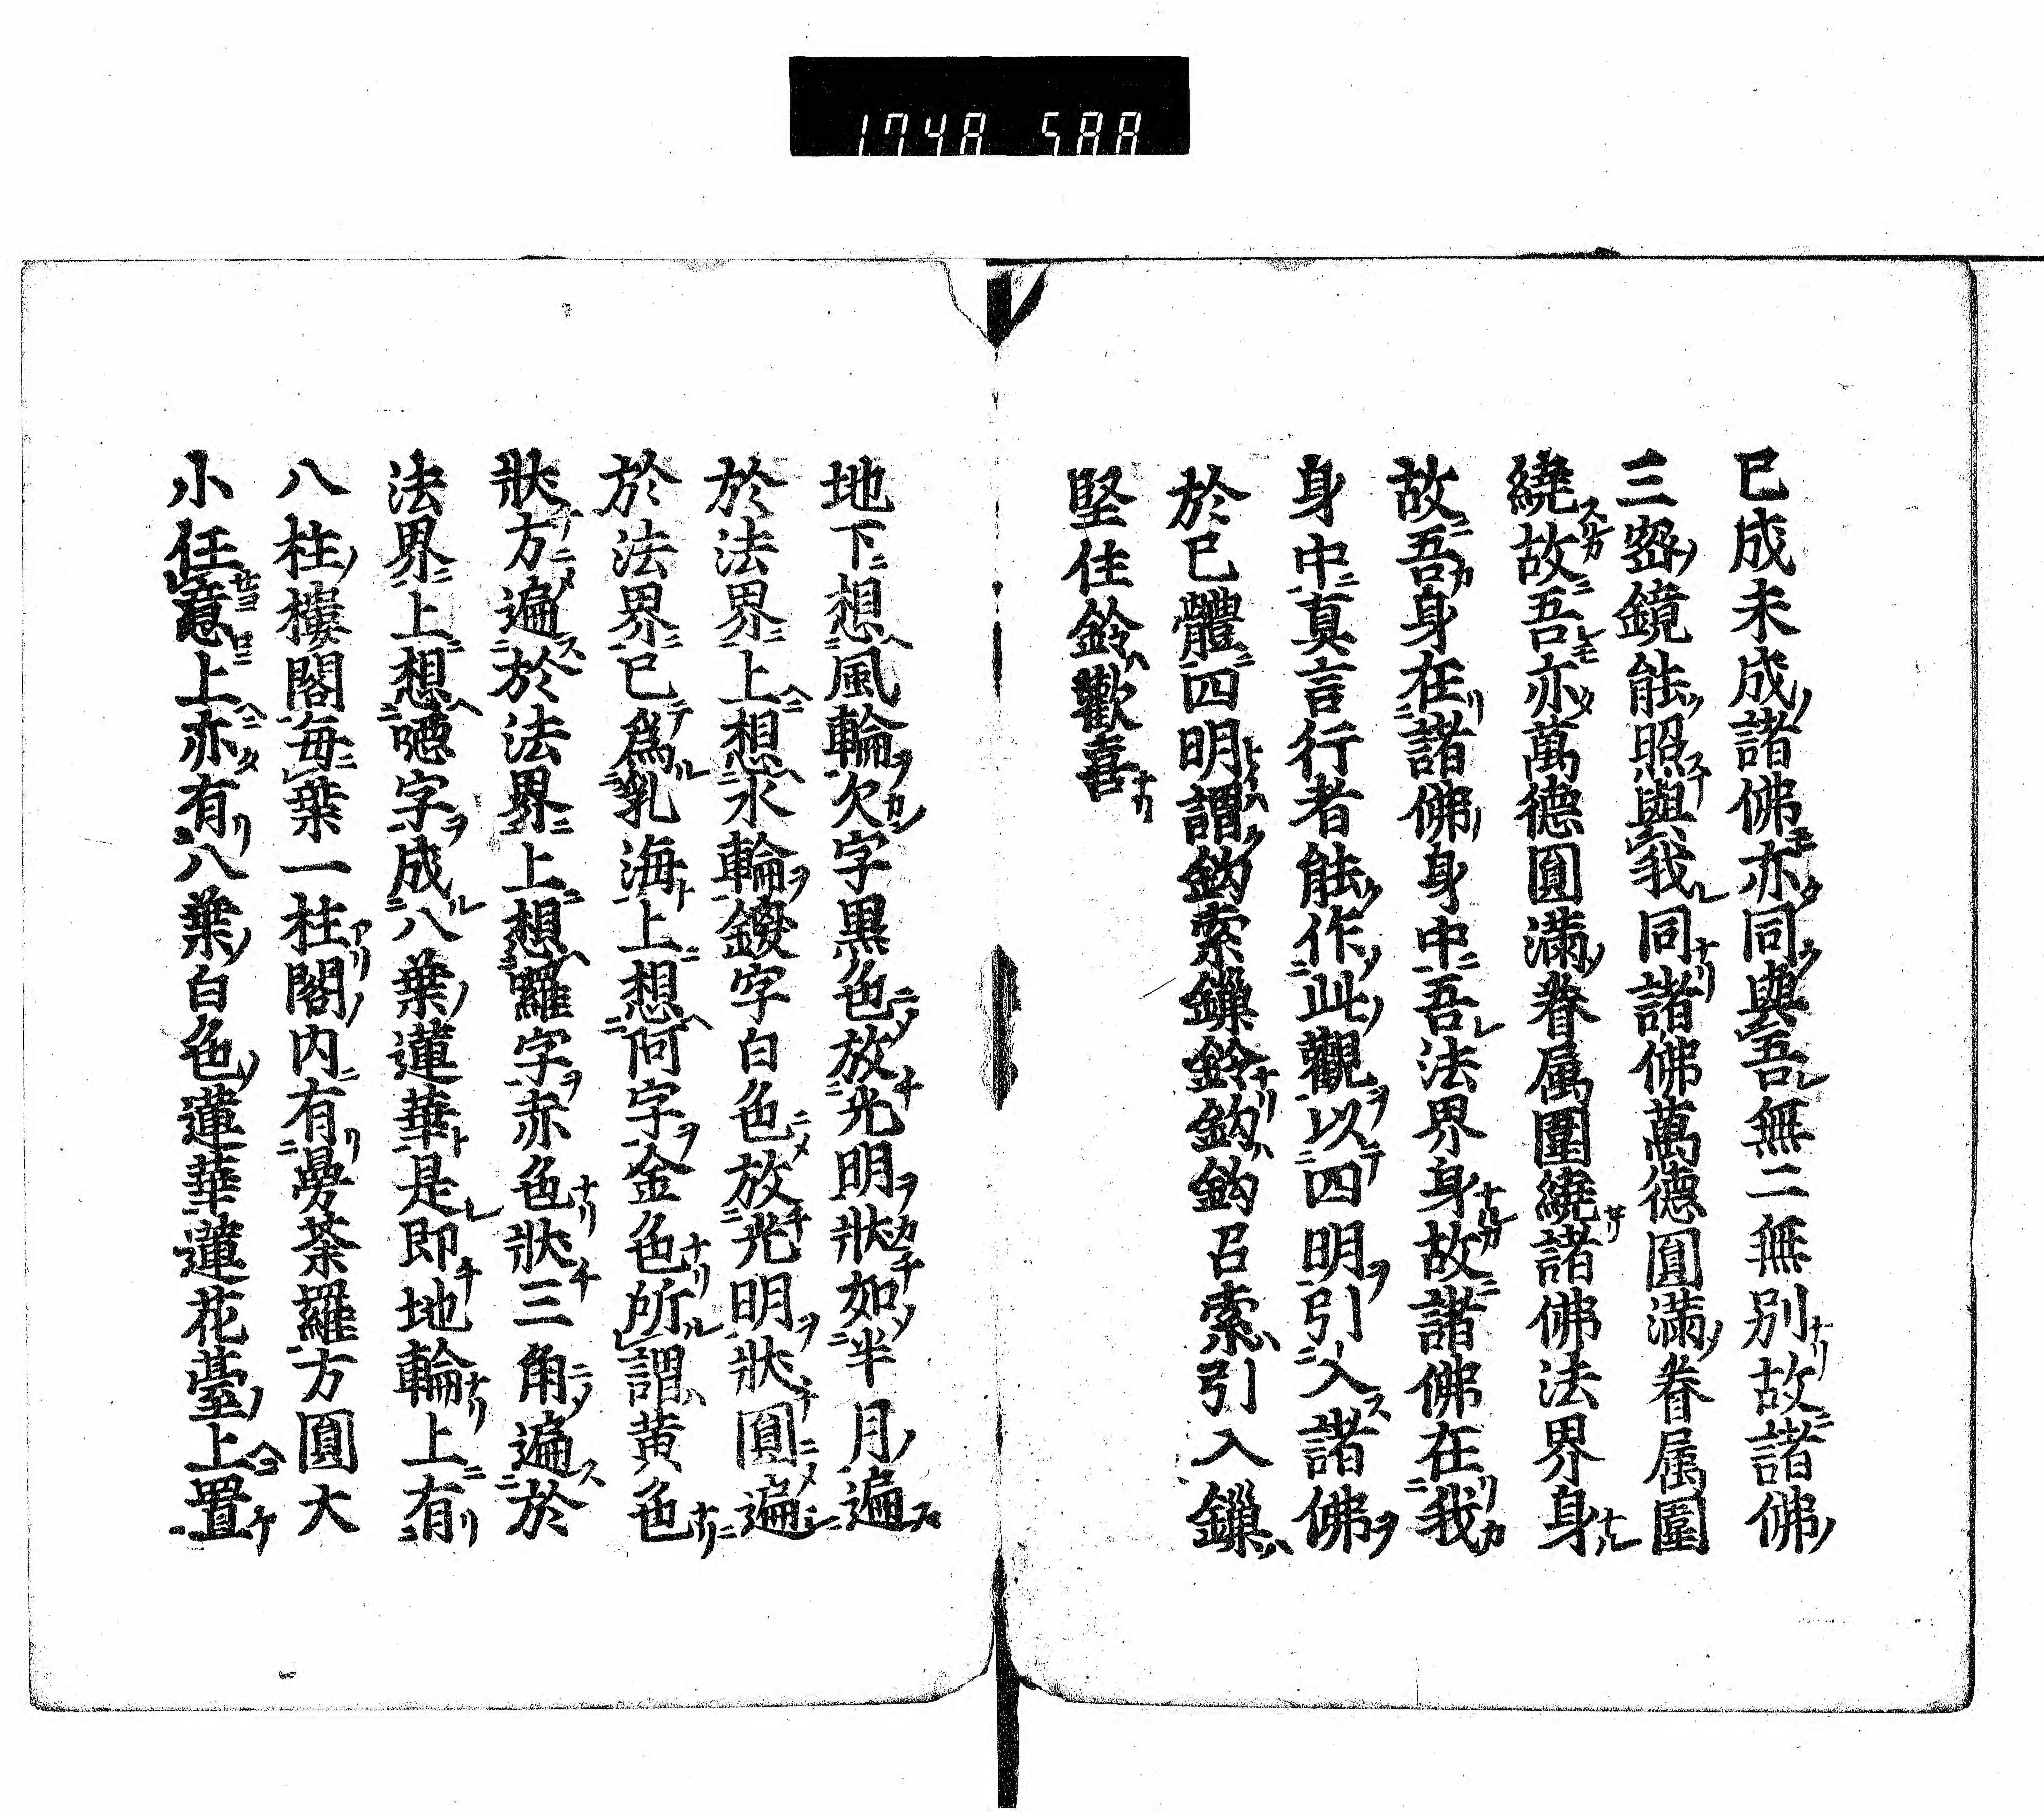 1748 588
已成未成諸佛亦同與吾無二無別故諸佛
三密鏡能照與我同諸佛萬德圓滿眷属圍
繞故吾亦萬德圓滿眷属圍繞諸佛法界身
故吾身在諸佛身中吾法界身故諸佛在我
身中真言行者能作此觀以四明引入諸佛
於已體四明謂鈎索鏁鈴鈎鈎召索引入鏁
堅住鈴歡喜
地下想風輪欠字黒色放光明狀如半月遍
於法界上想水輪鑁字白色放光明狀圓遍
於法界已為乳海上想阿字金色所謂黄色
狀方遍於法界上想囉字赤色狀三角遍於
法界上想嗯字成八葉蓮華是即地輪上有
八柱樓閣毎葉一柱閣内有曼荼羅方圓大
小任意上亦有八葉白色蓮華蓮花臺上置